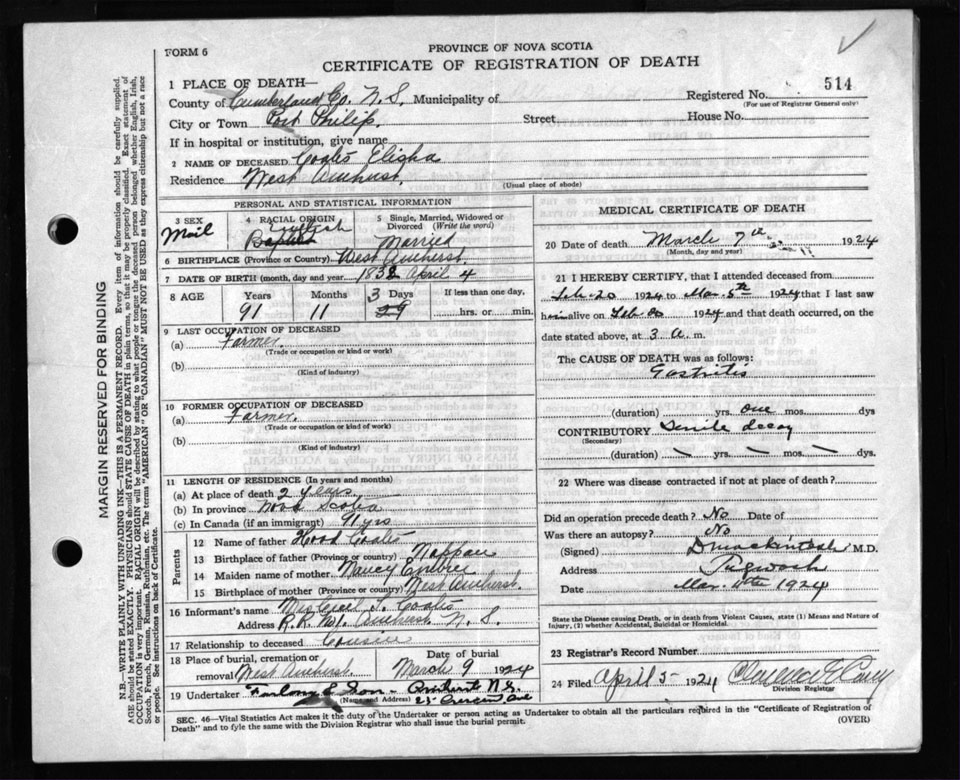 FORM 6
PROVINCE OF NOVA SCOTIA
CERTIFICATE OF REGISTRATION OF DEATH
1 PLACE OF DEATH—
Registered No. 514
(For use of Registrar General only)
County of Cumberland Co. N.S. Municipality of
City or Town Port Philip. Street House No.
If in hospital or institution, give name
2 NAME OF DECEASED Coates Elisha
Residence West Amherst.
(Usual place of abode)
PERSONAL AND STATISTICAL INFORMATION
3 SEX
Mail
4 RACIAL ORIGIN
English
Baptist
5 Single, Married, Widowed or Divorced (Write the word)
Married
6 BIRTHPLACE (Province or Country) West Amherst.
7 DATE OF BIRTH (month, day and year) 1832 April 4
8 AGE Years Months Days If less than one day,
91 11 3 29 hrs. or min.
9 LAST OCCUPATION OF DECEASED
(a) Farmer.
(Trade or occupation or kind or work)
(b)
(Kind of industry)
10 FORMER OCCUPATION OF DECEASED
(a) Farmer.
(Trade or occupation or kind of work)
(b)
(Kind of Industry)
11 LENGTH OF RESIDENCE (In years and months)
(a) At place of death 2 years
(b) In province Nova Scotia
(c) In Canada (if an immigrant) 91 yrs
Parents
12 Name of father Coates
13 Birthplace of father (Province or country) Nappan
14 Maiden name of mother Nancy Embree
15 Birthplace of mother (Province or country) West Amherst.
16 Informant's name Cecil S. Coates
Address R.R. No 1. Amherst N.S.
17 Relationship to deceased Cousin
18 Place of burial, cremation or removal West Amherst
Date of burial March 9 1924
19 Undertaker & Son - Amherst N.S.
(Name and Address) 25 Crescent Ave
MEDICAL CERTIFICATE OF DEATH
20 Date of death March 7th 1924
(Month, day and year)
21 I HEREBY CERTIFY, that I attended deceased from
Feb-20 1924 to Mar. 5th 1924 that I last saw
him alive on Feb 1924 and that death occurred, on
date stated above, at 3 a. m.
The CAUSE OF DEATH was as follows:
Gastritis
(duration) yrs. one mos. dys
CONTRIBUTORY Senile decay
(Secondary)
(duration) yrs. mos. dys.
22 Where was disease contracted if not at place of death?
Did an operation precede death? No Date of
Was there an autopsy? No
(Signed) D Mackintosh M.D.
Address Pugwash
Date Mar. 1924
State the Disease causing Death, or in death from Violent Causes, state (1) Means and Nature of Injury, (2) whether Accidental, Suicidal or Homicidal.
23 Registrar's Record Number
24 Filed April 5 - 1924
Division Registrar
SEC. 46—Vital Statistics Act makes it the duty of the Undertaker or person acting as Undertaker to obtain all the particulars required in the "Certificate of Registration of
Death" and to fyle the same with the Division Registrar who shall issue the burial permit.
(OVER)
MARGIN RESERVED FOR BINDING
N.B.—WRITE PLAINLY WITH UNFADING INK—THIS IS A PERMANENT RECORD. Every item of information should be carefully supplied.
AGE should be stated EXACTLY. PHYSICIANS should STATE CAUSE OF DEATH in plain terms, so that it may be properly classified. Exact statement of
OCCUPATION is very important. RACIAL ORIGIN will be described by stating to what people or tongue the deceased person belonged whether English, Irish,
Scotch, French, German, Russian, Ruthenian, etc. The terms "AMERICAN" or "CANADIAN" MUST NOT BE USED as they express citizenship but not a race
or people. See instructions on back of Certificate.